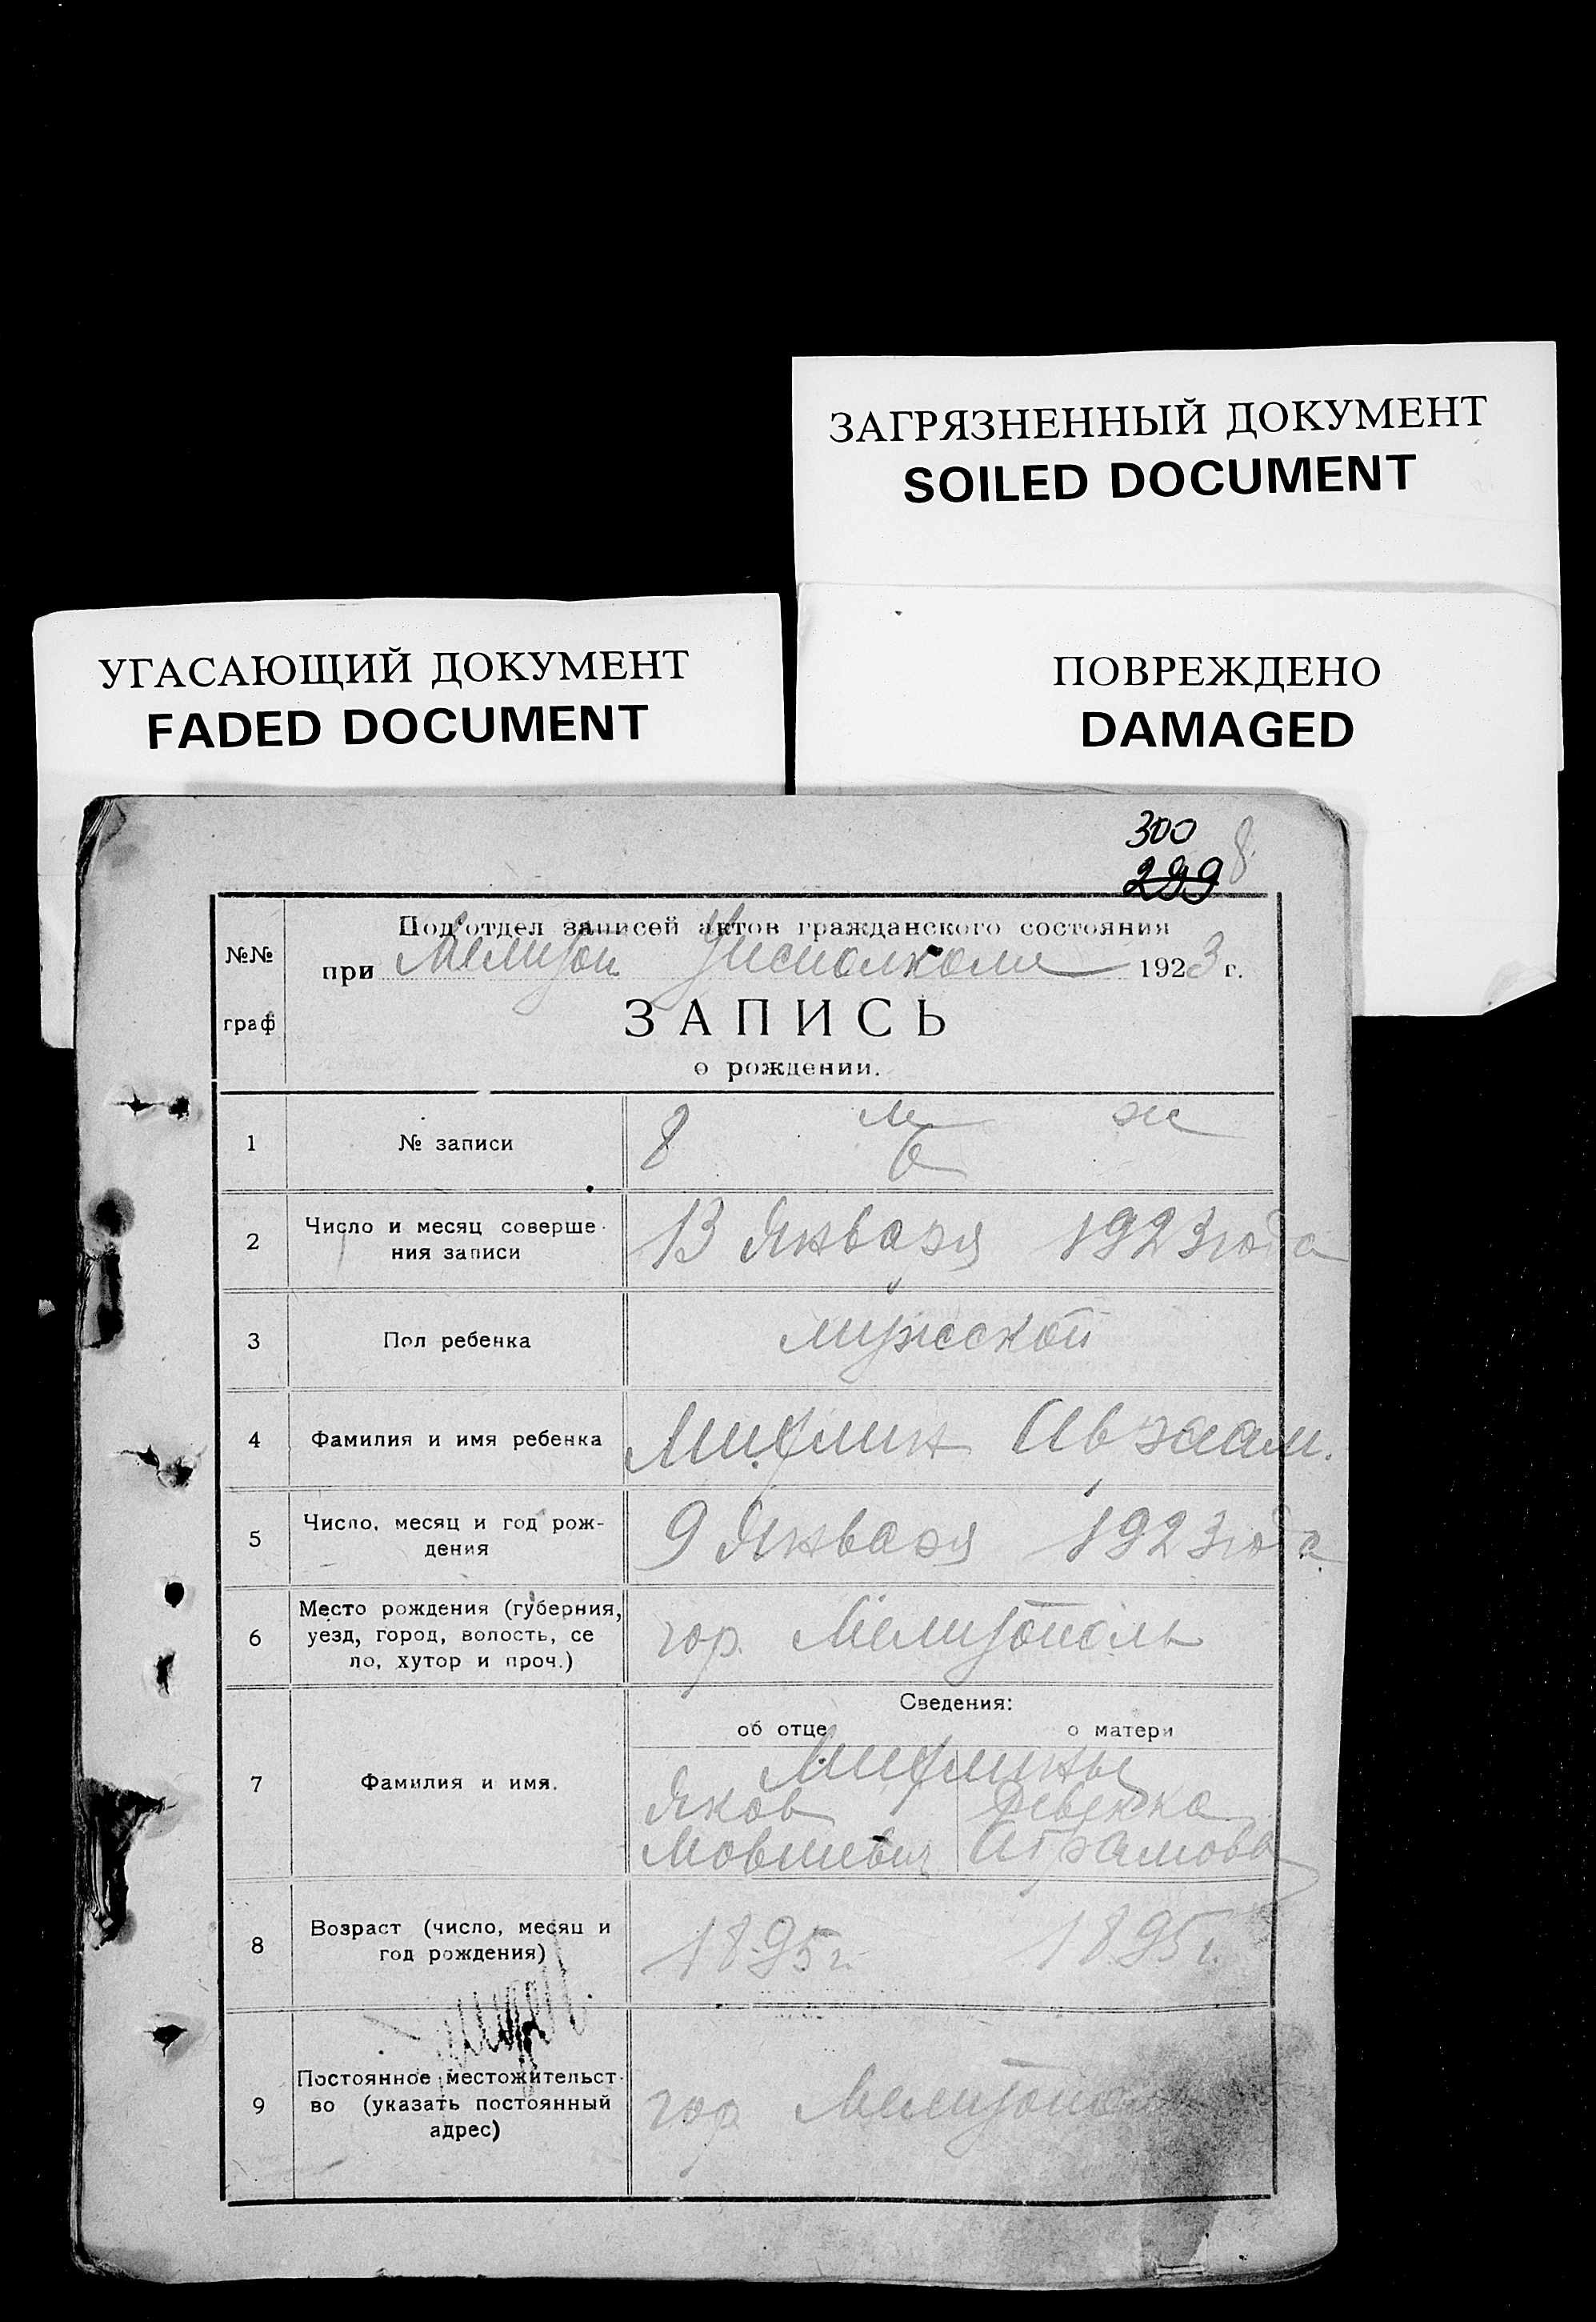 ЗАГРЯЗНЕННЫЙ ДОКУМЕНТ
SOILED DOCUMENT
УГАСАЮЩИЙ ДОКУМЕНТ
FADED DOCUMENT
ПОВРЕЖДЕНО
DAMAGED
300
299 8
№№
граф
Подотдел записей актов гражданского состояния
при Мелитоп Уисполкоме 1923 г.
ЗАПИСЬ
о рождении.
1 № записи 8 м ж
6
2 Число и месяц соверше-
ния записи 13 Января 1923 года
3 Пол ребенка мужской
4 Фамилия и имя ребенка Авраам.
5 Число, месяц и год рож-
дения 9 Января 1923 года
6 Место рождения (губерния,
уезд, город, волость, се
ло, хутор и проч.) гор. Мелитополь
Сведения:
об отце о матери
7 Фамилия и имя.
Яков Ревекка
Мовшевич Абрамовна
8 Возраст (число, месяц и
год рождения) 1895 г. 1895 г.
9 Постоянное местожительст-
во (указать постоянный
адрес) гор Мелитополь